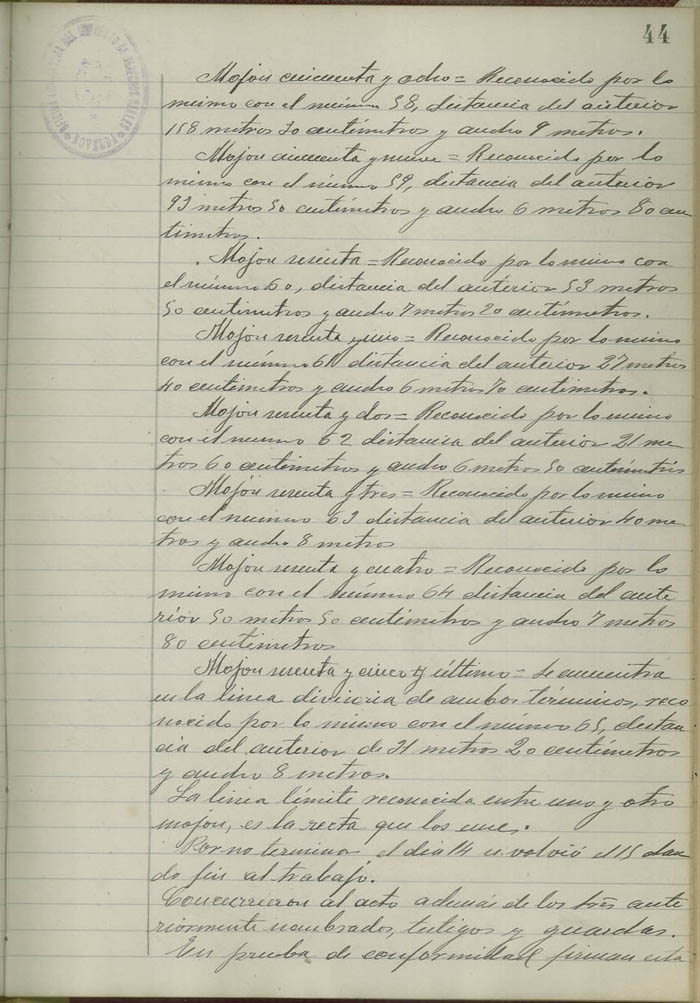 44
Mojon cincuenta y ocho = Reconocido por lo
mismo con el número 58, distancia del anterior
158 metros 70 centímetros y ancho 9 metros.
Mojon cincuenta y nueve = Reconocido por lo
mismo con el número 59, distancia del anterior
93 metros 50 centímetros y ancho 6 metros 80 cen
tímetros.
Mojon sesenta = Reconocido por lo mismo con
el número 60, distancia del anterior 53 metros
50 centimetros y ancho 7 metros 20 centímetros.
Mojon sesenta y uno = Reconocido por lo mismo
con el número 61 distancia del anterior 27 metros
40 centímetros y ancho 6 metros 70 centimetros.
Mojon sesenta y dos = Reconocido por lo mismo
con el numero 62 distancia del anterior 21 me
tros 60 centímetros y ancho 6 metros 50 centímetros
Mojón sesenta y tres = Reconocido por lo mismo
con el numero 63 distancia del anterior 40 me
tros y ancho 8 metros
Mojon sesenta y cuatro = Reconocido por lo
mismo con el número 64 distancia del ante
riór 50 metros 50 centímetros y ancho 7 metros
80 centímetros
Mojon sesenta y cinco y último = Se encuentra
en la línea divisoria de ambos términos, reco
nocido por lo mismo con el número 65, distan
cia del anterior de 71 metros 20 centímetros
y ancho 8 metros.
La linea límite reconocida entre uno y otro
mojon, es la recta que los une.
Por no terminar el dia 14 se volvió el 15 dan
do fin al trabajo.
Concurrieron al acto además de los tres ante
riormente nombrados, testigos y guardas.
En prueba de conformidad firman esta